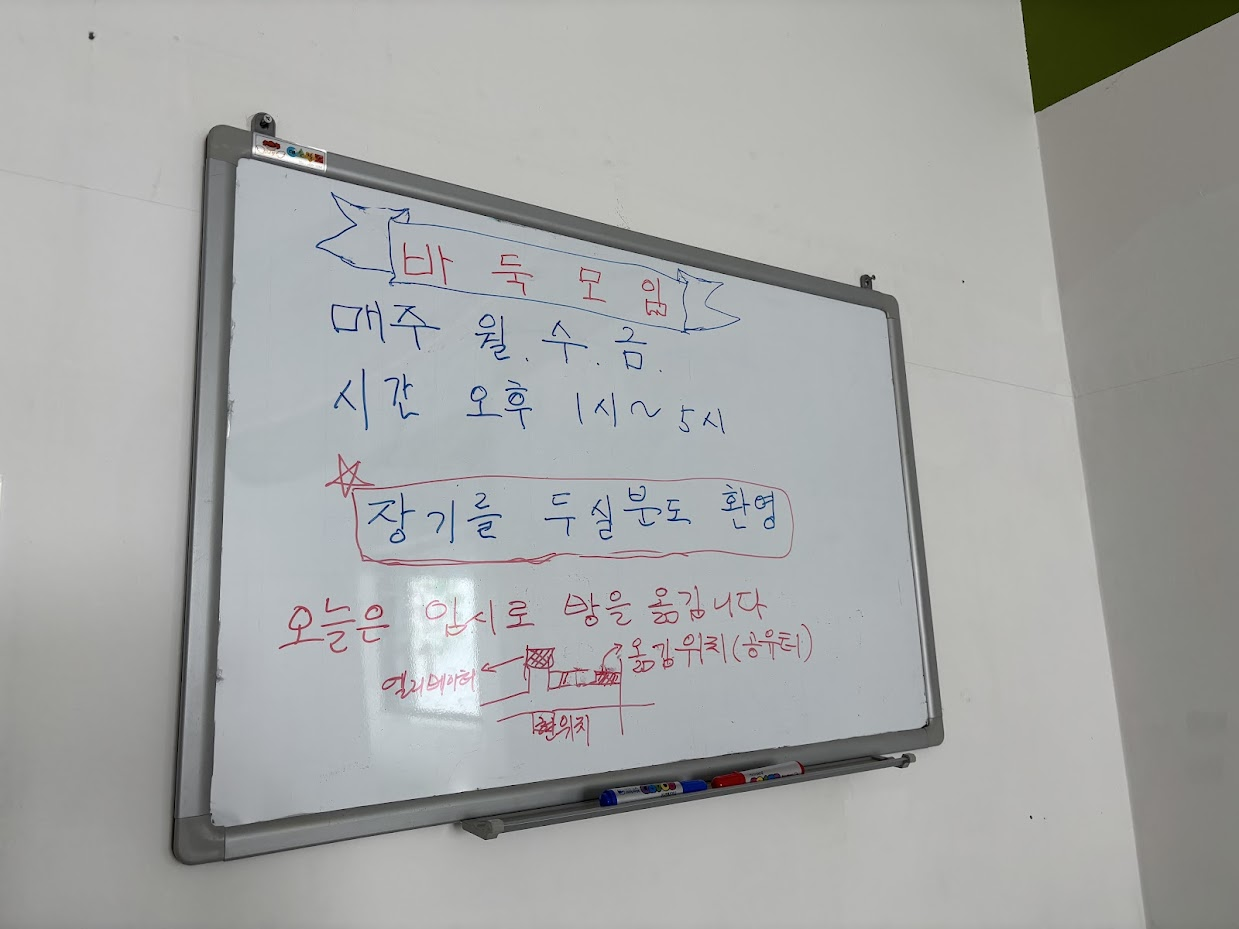 바둑모임
매주 월.수.금.
시간 오후 1시~5시
장기를 두실분도 환영
오늘은 임시로 방을 옮깁니다
옮김위치(공유터)
엘리베이터
현위치